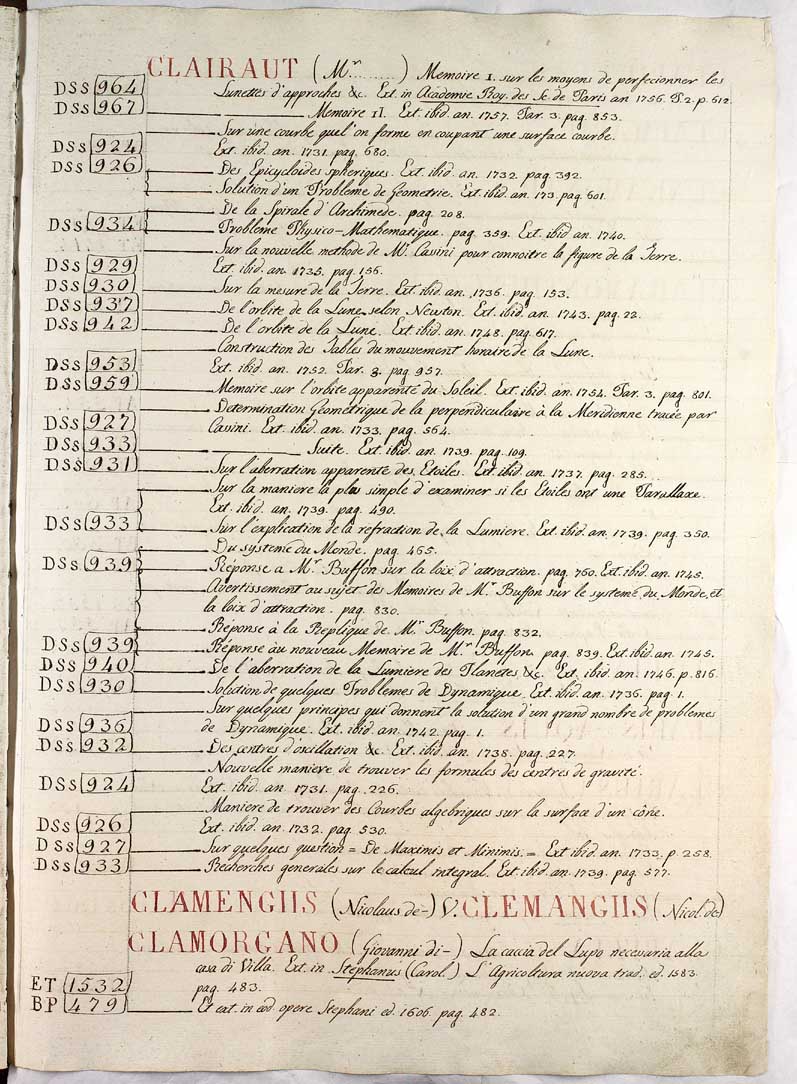 CLAIRAUT (Mr ........) Memoire I. sur les moyens de perfecionner les
DSS 964 Lunettes d'approches &c. Ext. in Academie Roy. des Sc. de Paris an 1756. P. 2. p. 612.
DSS 967 Memoire II. Ext. ibid. an. 1757. Par. 3. pag. 853.
Sur une courbe quel'on forme en coupant une surface courbe.
DSS 924 Ext. ibid. an. 1731. pag. 680.
DSS 926 Des Epicycloides spheriques. Ext. ibid. an. 1732. pag. 392.
Solution d'un Probleme de Geometrie. Ext. ibid. an. 173. pag. 601.
De la Spirale d'Archimede. pag. 208.
DSS 934 Probleme Physico-Mathematique. pag. 359. Ext. ibid an. 1740.
Sur la nouvelle methode de Mr. Cassini pour connoitre la figure de la Terre.
DSS 929 Ext. ibid. an. 1735. pag. 156.
DSS 930 Sur la mesure de la Terre. Ext. ibid. an. 1736. pag. 153.
DSS 937 De l'orbite de la Lune, selon Newton. Ext. ibid. an. 1743. pag. 22.
DSS 942 De l'orbite de la Lune. Ext ibid an. 1748. pag. 617.
Construction des Tables du mouvement horaire de la Lune.
DSS 953 Ext. ibid an. 1752. Par. 3. pag 957.
DSS 959 Memoire sur l'orbite apparente du Soleil. Ext. ibid an. 1754. Par. 3. pag. 801.
Determination Geometrique de la perpendiculaire à la Meridienne tracée par
DSS 927 Cassini. Ext. ibid an. 1733. pag. 564.
DSS 933 Suite. Ext ibid an. 1739. pag. 109.
DSS 931 Sur l'aberration apparente des Etoiles. Ext. ibid an. 1737. pag. 285.
Sur la maniere la plus simple d'examiner si les Etoiles ont une Parallaxe.
Ext. ibid. an. 1739. pag. 490.
DSS 933 Sur l'explication de la refraction de la Lumiere. Ext. ibid. an. 1739. pag. 350.
Du systeme du Monde. pag. 465.
DSS 939 Réponse a Mr. Buffon sur la loix d'attraction. pag. 760. Ext. ibid an. 1745.
Avertissement au sujet des Memoires de Mr Buffon sur le systeme du Monde, et
la loix d'attraction. pag. 830.
Réponse à la Replique de Mr Buffon. pag. 832.
DSS 939 Réponse au nouveau Memoire de Mr Buffon. pag. 839. Ext. ibid an. 1745.
DSS 940 De l'aberration de la Lumiere des Planetes &c. Ext. ibid an. 1746. p. 816.
DSS 930 Solution de quelques Problemes de Dynamique. Ext. ibid an. 1736. pag 1.
Sur quelques principes qui donnent la solution d'un grand nombre de problemes
DSS 936 de Dynamique. Ext. ibid an. 1742. pag 1.
DSS 932 Des centres d'oscillation &c. Ext. ibid an. 1738. pag. 227.
Nouvelle maniere de trouver les formules des centres de gravité.
DSS 924 Ext. ibid an. 1731. pag. 226.
Maniere de trouver des Courbes algebriques sur la surface d'un cône.
DSS 926 Ext. ibid. an. 1732. pag. 530.
DSS 927 Sur quelques question = De Maximis et Minimis. = Ext ibid an. 1733. p. 258.
DSS 933 Recherches generales sur le calcul integral. Ext. ibid an. 1739. pag. 577.
CLAMENGIIS (Nicolaus de-) V. CLEMANGIIS (Nicol. de)
CLAMORGANO (Giovanni di-) La caccia del Lupo necessaria alla
casa di Villa. Ext. in Stephanus (Carol.) L'Agricoltura nuova trad. ed. 1583.
ET 1532 pag. 483.
BP 479 Et ext. in eod. opere Stephani ed. 1606. pag. 482.